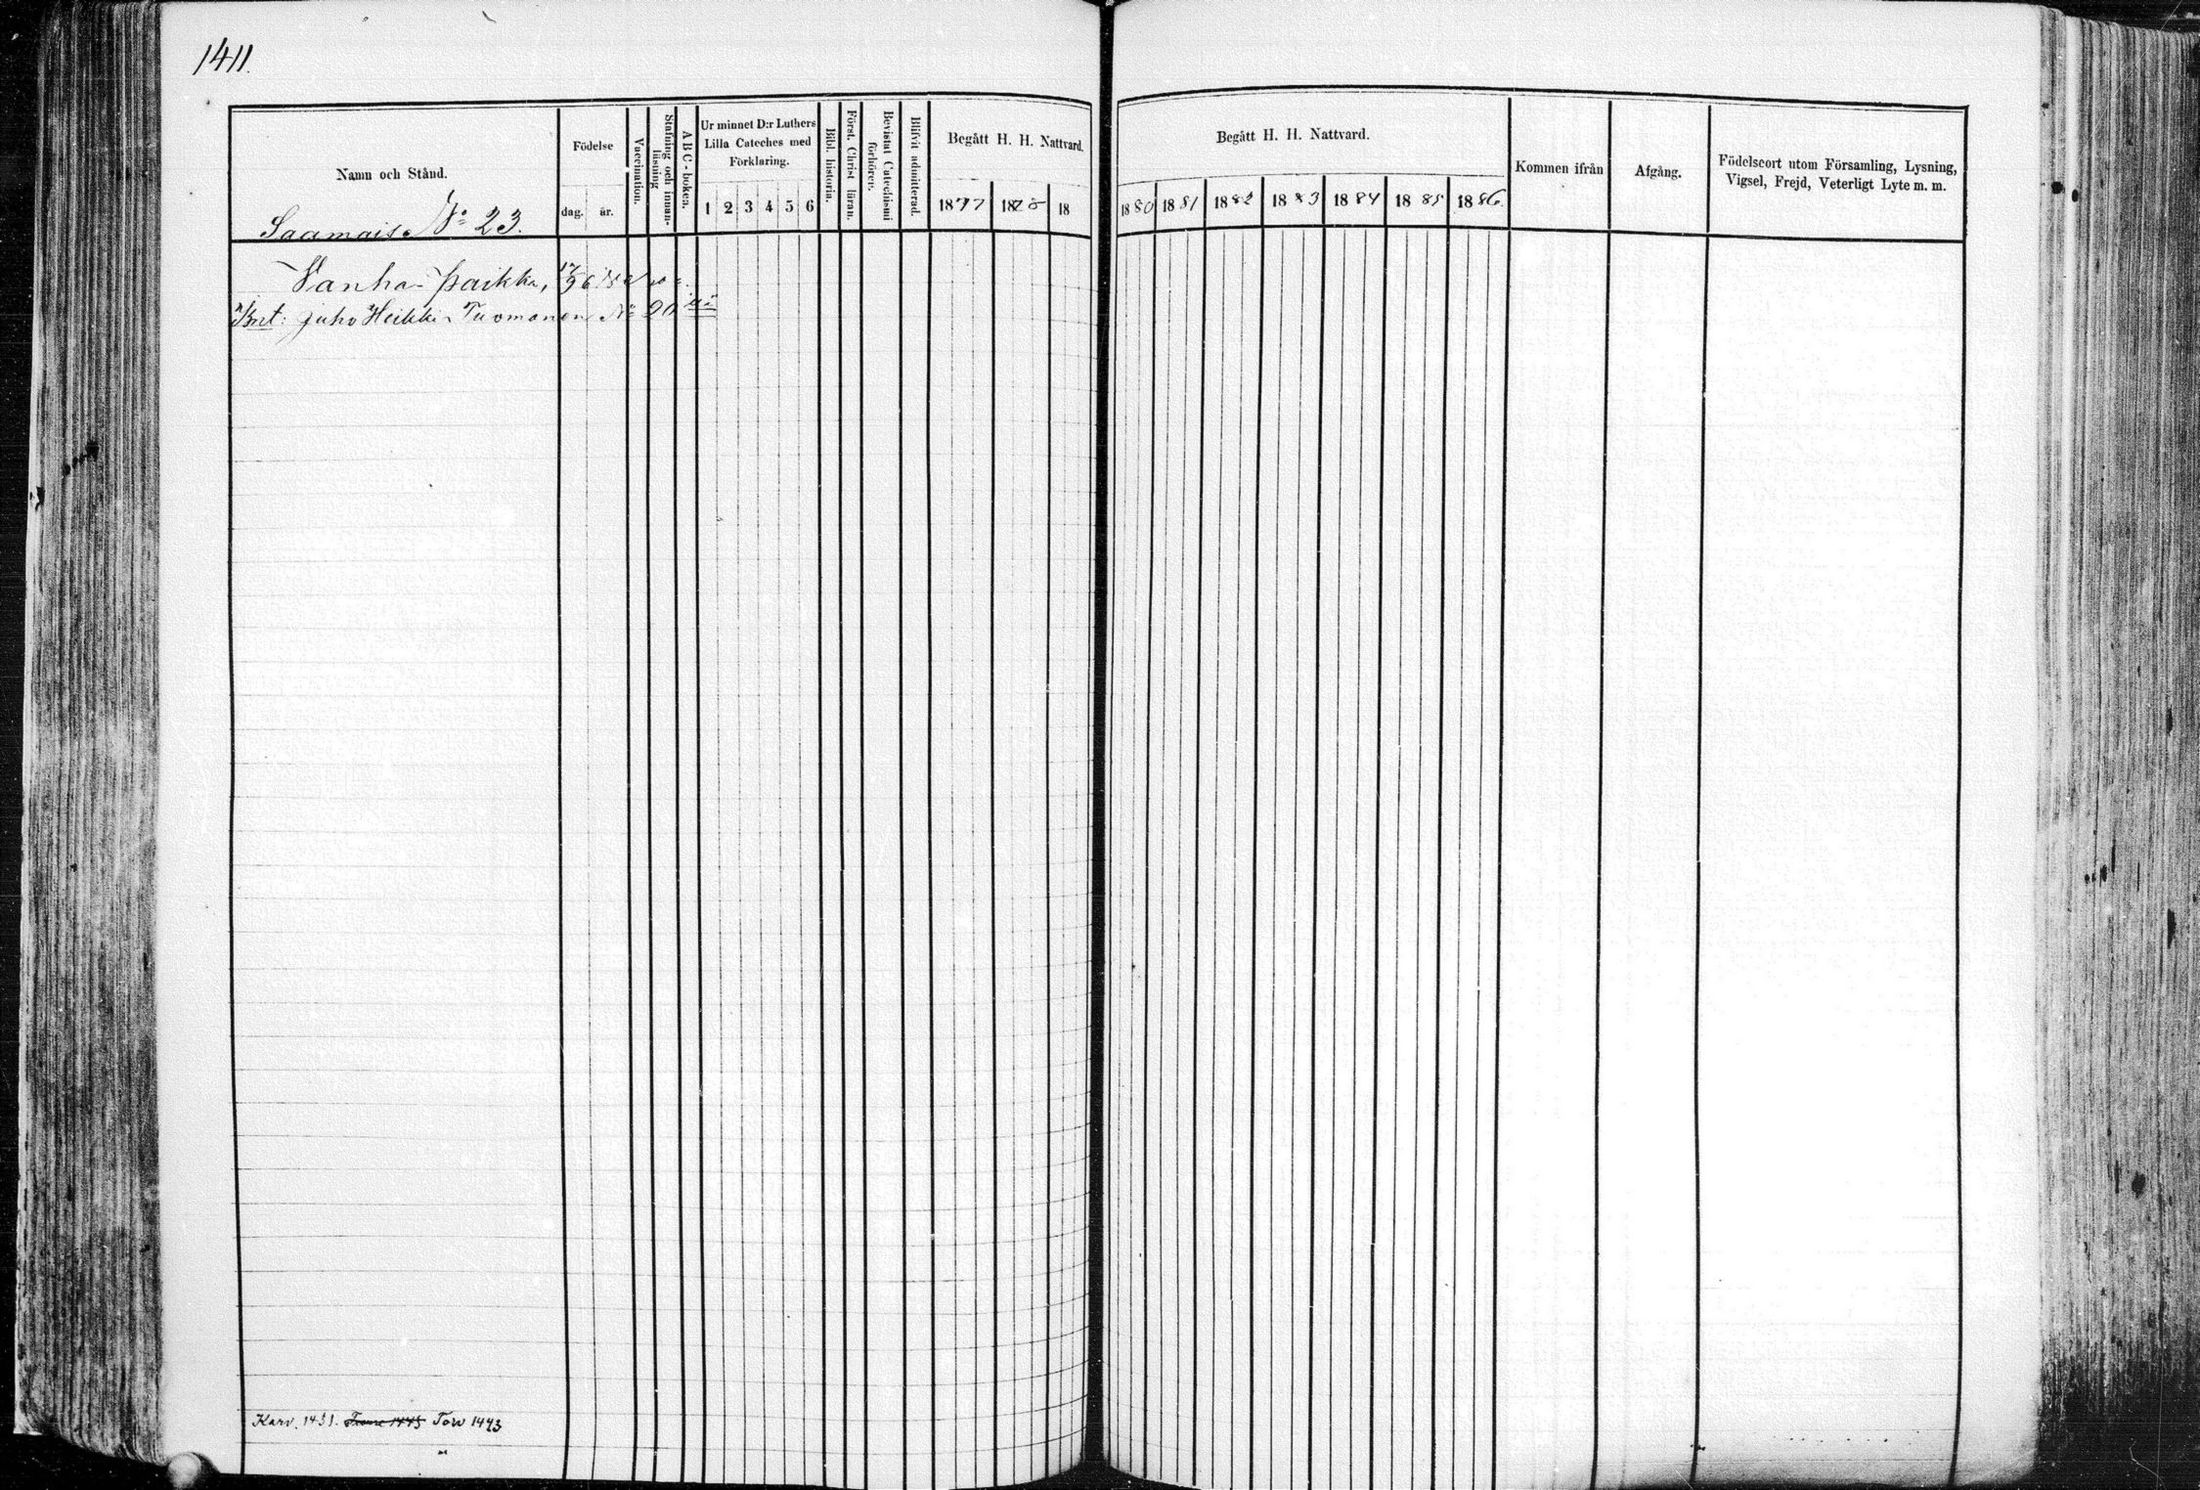 1411.
Namn och Stånd.
Saamais N:o 23.
Födelse
dag. år.
Vaccination.
Stafning och innan-läsning
ABC-boken.
Ur minnet D:r Luthers
Lilla Cateches med
Förklaring.
1 2 3 4 5 6
Bibl. historia.
Först. Christ läran.
Bevistat Catechismi
förhören.
Blifvit admitterad.
Begått H. H. Nattvard.
1877 1878 18
Begått H. H. Nattvard.
1880 1881 1882 1883 1884 1885 1886
Kommen ifrån
Afgång.
Födelseort utom Församling, Lysning,
Vigsel, Frejd, Veterligt Lyte m. m.
Vanha-paikka,
Juho Heikki Tuomonen N:o 20
Karv. 1431. Tow 1443